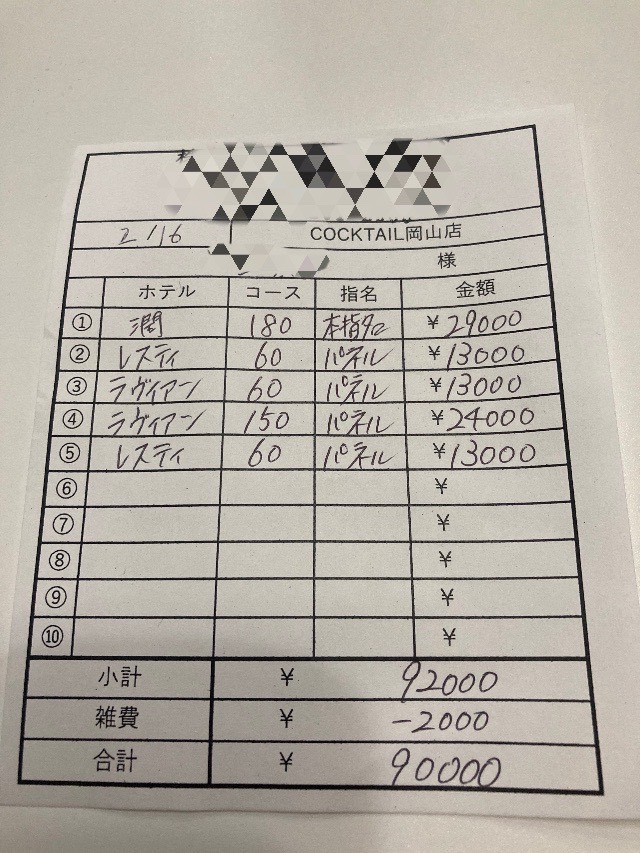 2/16 COCKTAIL岡山店
様
ホテル コース 指名 金額
① 潤 180 本指名 ¥29000
② レスティ 60 パネル ¥13000
③ ラヴィアン 60 パネル ¥13000
④ ラヴィアン 150 パネル ¥24000
⑤ レスティ 60 パネル ¥13000
⑥ ¥
⑦ ¥
⑧ ¥
⑨ ¥
⑩ ¥
小計 ¥ 92000
雑費 ¥ -2000
合計 ¥ 90000